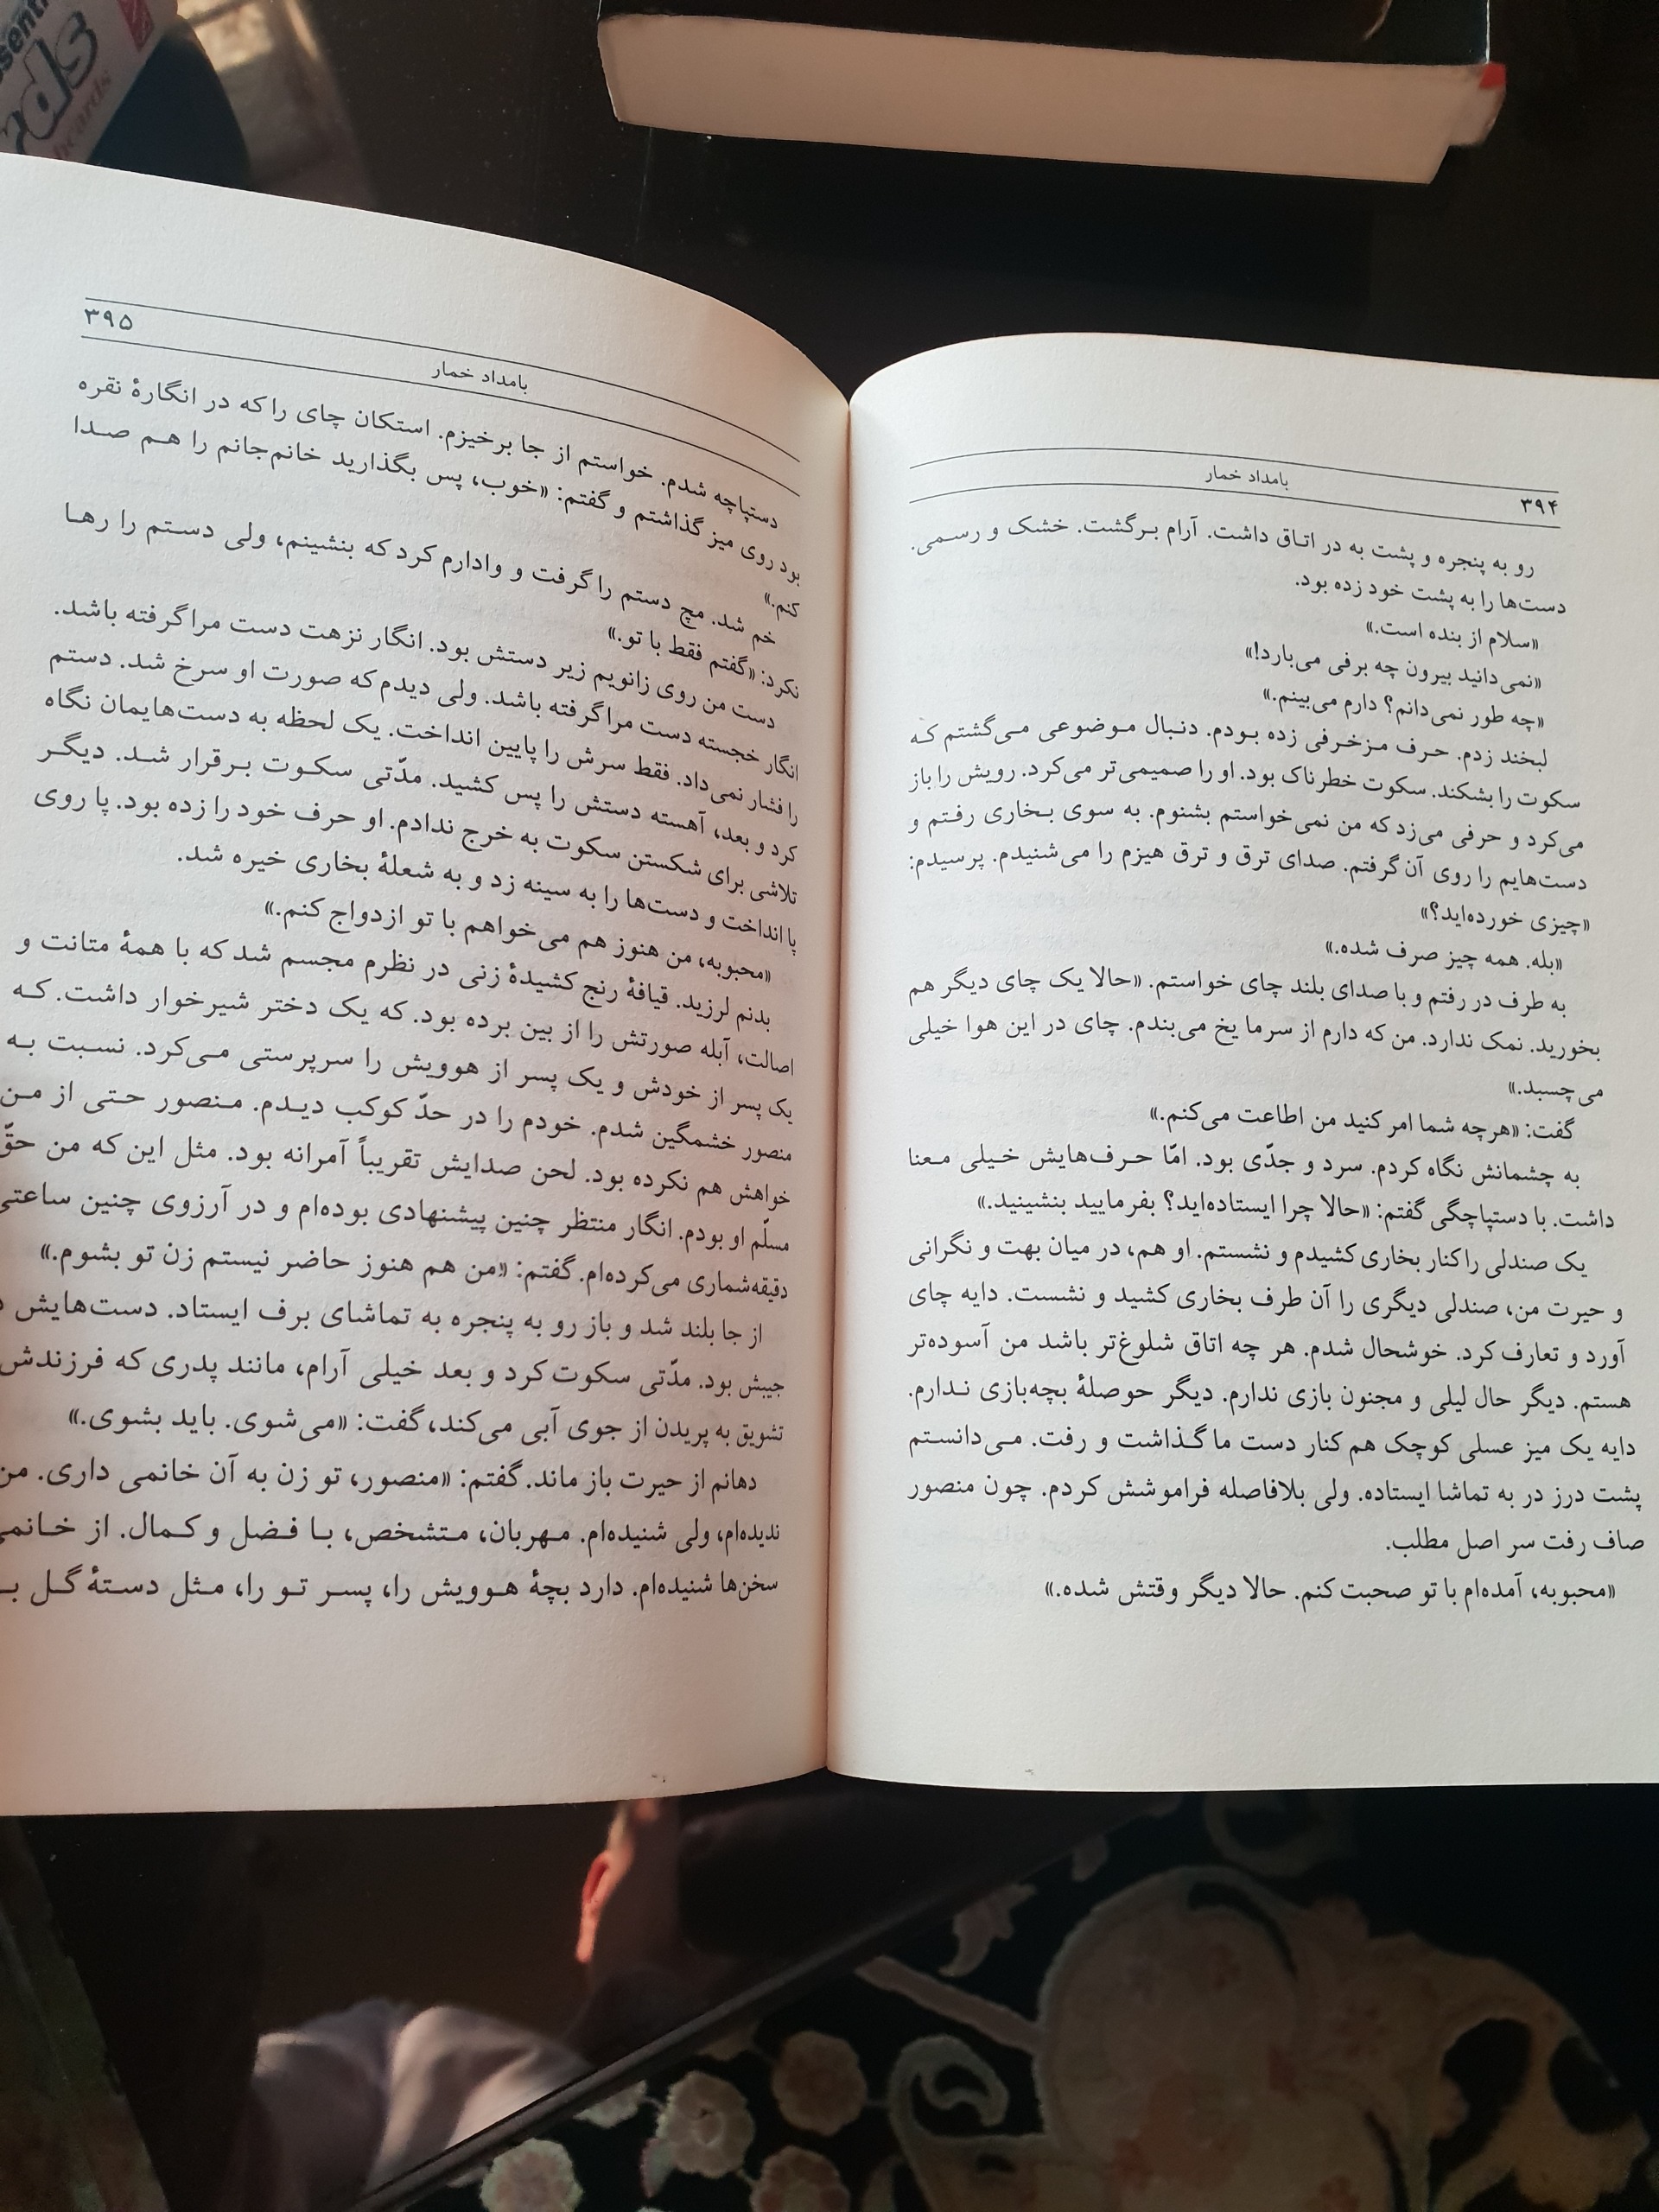 ۳۹۴
بامداد خمار
رو به پنجره و پشت به در اتاق داشت. آرام برگشت. خشک و رسمی.
دست‌ها را به پشت خود زده بود.
«سلام از بنده است.»
«نمی‌دانید بیرون چه برفی می‌بارد!»
«چه طور نمی‌دانم؟ دارم می‌بینم.»
لبخند زدم. حرف مزخرفی زده بودم. دنبال موضوعی می‌گشتم که
سکوت را بشکند. سکوت خطرناک بود. او را صمیمی‌تر می‌کرد. رویش را باز
می‌کرد و حرفی می‌زد که من نمی‌خواستم بشنوم. به سوی بخاری رفتم و
دست‌هایم را روی آن گرفتم. صدای ترق و ترق هیزم را می‌شنیدم. پرسیدم:
«چیزی خورده‌اید؟»
«بله. همه چیز صرف شده.»
به طرف در رفتم و با صدای بلند چای خواستم. «حالا یک چای دیگر هم
بخورید. نمک ندارد. من که دارم از سرما یخ می‌بندم. چای در این هوا خیلی
می‌چسبد.»
گفت: «هرچه شما امر کنید من اطاعت می‌کنم.»
به چشمانش نگاه کردم. سرد و جدّی بود. امّا حرف‌هایش خیلی معنا
داشت. با دستپاچگی گفتم: «حالا چرا ایستاده‌اید؟ بفرمایید بنشینید.»
یک صندلی را کنار بخاری کشیدم و نشستم. او هم، در میان بهت و نگرانی
و حیرت من، صندلی دیگری را آن طرف بخاری کشید و نشست. دایه چای
آورد و تعارف کرد. خوشحال شدم. هر چه اتاق شلوغ‌تر باشد من آسوده‌تر
هستم. دیگر حال لیلی و مجنون بازی ندارم. دیگر حوصلهٔ بچه‌بازی ندارم.
دایه یک میز عسلی کوچک هم کنار دست ما گذاشت و رفت. می‌دانستم
پشت درز در به تماشا ایستاده. ولی بلافاصله فراموشش کردم. چون منصور
صاف رفت سر اصل مطلب.
«محبوبه، آمده‌ام با تو صحبت کنم. حالا دیگر وقتش شده.»
۳۹۵
بامداد خمار
دستپاچه شدم. خواستم از جا برخیزم. استکان چای را که در انگارهٔ نقره
بود روی میز گذاشتم و گفتم: «خوب، پس بگذارید خانم‌جانم را هم صدا
کنم.»
خم شد. مچ دستم را گرفت و وادارم کرد که بنشینم، ولی دستم را رها
نکرد: «گفتم فقط با تو.»
دست من روی زانویم زیر دستش بود. انگار نزهت دست مرا گرفته باشد.
انگار خجسته دست مرا گرفته باشد. ولی دیدم که صورت او سرخ شد. دستم
را فشار نمی‌داد. فقط سرش را پایین انداخت. یک لحظه به دست‌هایمان نگاه
کرد و بعد، آهسته دستش را پس کشید. مدّتی سکوت برقرار شد. دیگر
تلاشی برای شکستن سکوت به خرج ندادم. او حرف خود را زده بود. پا روی
پا انداخت و دست‌ها را به سینه زد و به شعلهٔ بخاری خیره شد.
«محبوبه، من هنوز هم می‌خواهم با تو ازدواج کنم.»
بدنم لرزید. قیافهٔ رنج کشیدهٔ زنی در نظرم مجسم شد که با همهٔ متانت و
اصالت، آبله صورتش را از بین برده بود. که یک دختر شیرخوار داشت. که
یک پسر از خودش و یک پسر از هوویش را سرپرستی می‌کرد. نسبت به
منصور خشمگین شدم. خودم را در حدّ کوکب دیدم. منصور حتی از من
خواهش هم نکرده بود. لحن صدایش تقریباً آمرانه بود. مثل این که من حقّ
مسلّم او بودم. انگار منتظر چنین پیشنهادی بوده‌ام و در آرزوی چنین ساعتی
دقیقه‌شماری می‌کرده‌ام. گفتم: «من هم هنوز حاضر نیستم زن تو بشوم.»
از جا بلند شد و باز رو به پنجره به تماشای برف ایستاد. دست‌هایش
جیبش بود. مدّتی سکوت کرد و بعد خیلی آرام، مانند پدری که فرزندش
تشویق به پریدن از جوی آبی می‌کند، گفت: «می‌شوی. باید بشوی.»
دهانم از حیرت باز ماند. گفتم: «منصور، تو زن به آن خانمی داری. من
ندیده‌ام، ولی شنیده‌ام. مهربان، متشخص، با فضل و کمال. از خانمی
سخن‌ها شنیده‌ام. دارد بچهٔ هوویش را، پسر تو را، مثل دستهٔ گل